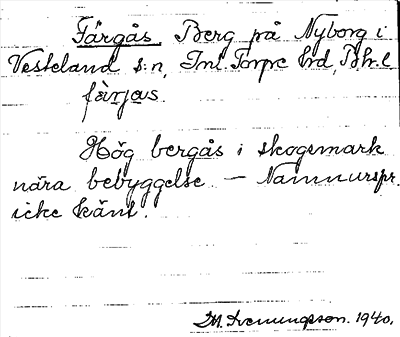 Färgås Berg på Nyborg i
Vesteland s:n, Inl. Torpe hrd, Bh. l
färjas.
Hög bergås i skogsmark
nära bebyggelse — Namnurspr.
icke känt.
M. Svenungsson. 1940.